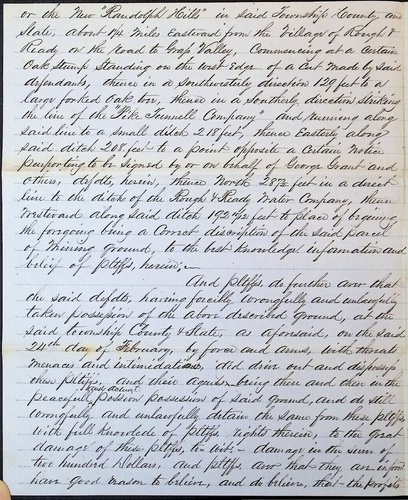 or the New "Randolph Hills" in said Township County and
State, about 1/4 Miles Eastward from the Village of Rough &
Ready on the Road to Grap Valley, Commencing at a Certain
Oak Stump Standing on the West Edge of a Cut Made by Said
defendants, thence in a Southwesterly direction 129 feet to a
large forked Oak tree, thence in a Southerly direction striking
the line of the "Pike Tunnell Company" and running along
said line to a small ditch 218 feet, thence Easterly along
said ditch 208 feet to a point opposite a Certain Notice
Purporting to be signed by or on behalf of George Grant and
others, defdts, herein, thence North 287 1/2 feet in a direct
line to the ditch of the Rough & Ready Water Company, thence
Westward along said ditch 192 1/2 feet to place of beginning,
the forgoing being a Correct discription of the said parcel
of Mining Ground, to the best knowledge information and
belief of Pltffs, herein,
And Pltffs, do further aver that
the said defdts, having forcibly wrongfully and unlawfully
taken possession of the above described Ground, at the
said township County & State, as aforesaid, on the said
24th day of February, by force and arms, with threats
menaces and intimidations, did drive out and dispossess
these Pltffs, and their agents being then and then in the
peaceful possion possession of said Ground, and do still
wrongfully and unlawfully detain the same from these Pltffs,
with full knowledge of Pltffs, rights therein, to the great
damage of these Pltffs, to wit:- damage in the sum of
two hundred Dollars, and Pltffs aver that they are informed
have Good reason to believe, and do believe, that the profits